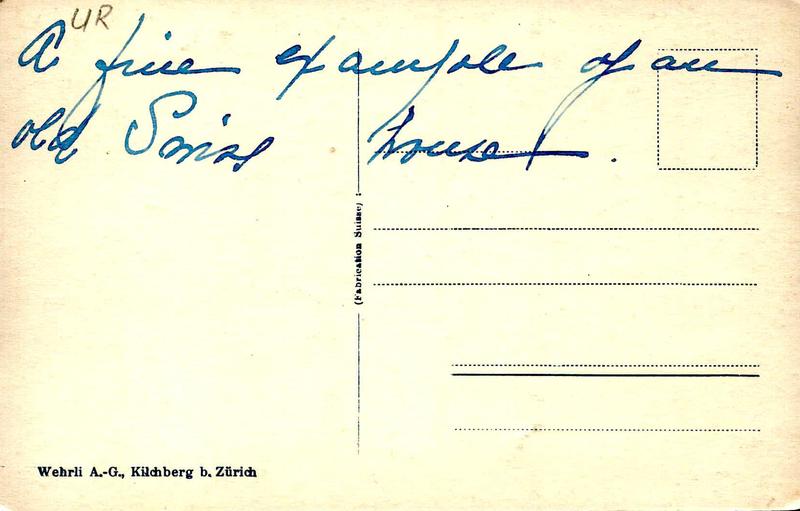 UR
A fine example of an
old Swiss house.
(Fabrication Suisse)
Wehrli A.-G., Kilchberg b. Zürich